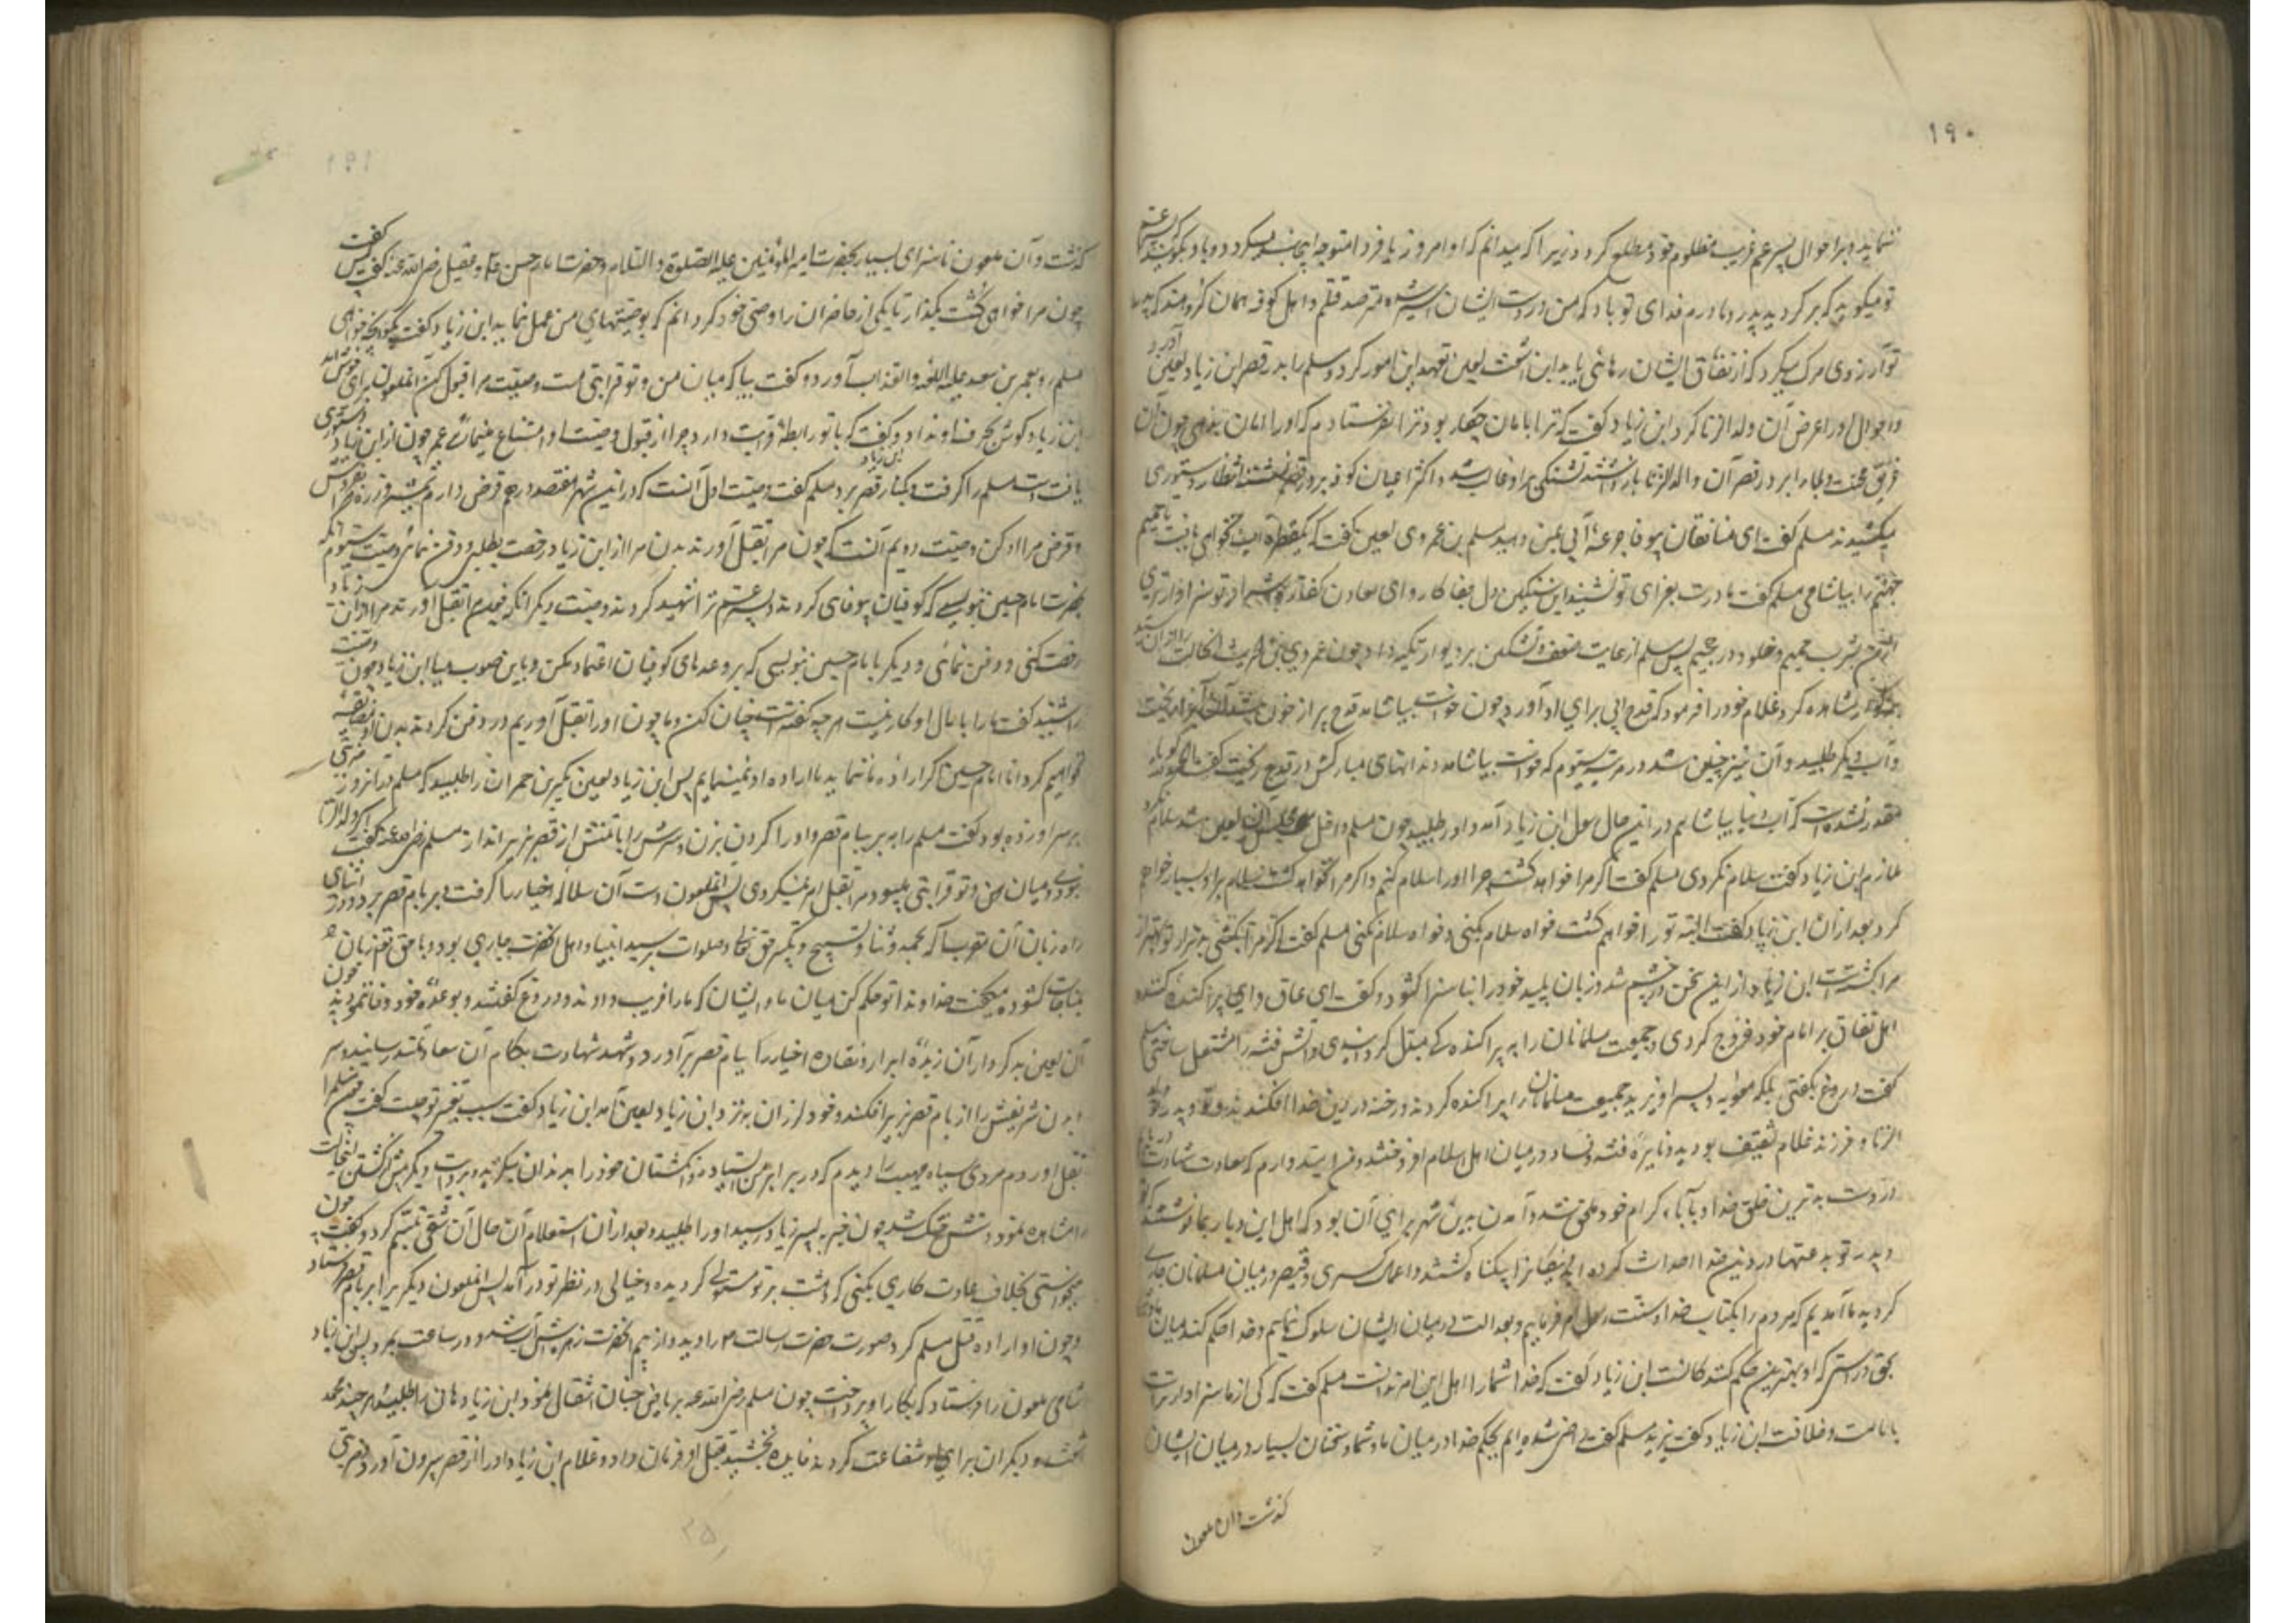 ۱۹۰
نماید و بر احوال پسر عم غریب مظلوم خود مطلع کرد د زیرا که میدانم که او امروز یا فردا متوجه این
تو میگوید که بر کردید پدر و مادرم فدای تو باد که من در دست ایشان اسیر شده مترصد قتلم و اهل کوفه همان کروهند که پدر
تو آرزوی مرک میکرد که از نفاق ایشان رهائی یابد ابن اشعث لعین تعهد این امور کرد و مسلم را بدر قصر ابن زیاد لعین
و احوال او را عرض آن ولد الزنا کرد ابن زیاد گفت که ترا با امان چکار بود ترا نفرستادم که او را امان بدهی چون آن
غریق محنت و بلا را بر در قصر آن ولد الزنا باز داشتند تشنکی بر او غالب شد و اکثر اعیان کوفه بر در قصر نشسته انتظار دستوری
میکشیدند مسلم گفت ای منافقان بیوفا جرعه آبی بمن دهید مسلم بن عمروی لعین گفت که یکقطره آب نخواهی یافت تا حمیم
جهنم را بیاشامی مسلم گفت مادرت بعزای تو نشیند ای سنکین دل جفا کار تو سزاوارتری
از من بشرب حمیم و خلود در جحیم پس مسلم از غایت ضعف و تشنکی بر دیوار تکیه داد چون عمرو بن حریث انحالت را
مشاهده کرد غلام خود را فرمود که قدح آبی برای او آورد چون خواست بیاشامد قدح پر از خون شد آن آب را بریخت
و آب دیگر طلبید و آن نیز چنین شد در مرتبه سیوم که خواست بیاشامد دندانهای مبارکش در قدح ریخت گفت الحمد لله
مقدر نشده است که آب دنیا بیاشامم در این حال رسول ابن زیاد آمد و او را طلبید چون مسلم داخل مجلس آن لعین شد سلام نکرد
ملازم ابن زیاد گفت سلام نکردی مسلم گفت اگر مرا خواهد کشت چرا او را سلام کنم و اکر مرا نخواهد کشت سلام بر او بسیار خواهم
کرد بعد از ان ابن زیاد گفت البته تو را خواهم کشت خواه سلام بکنی و خواه سلام نکنی مسلم گفت اکر مرا بکشی بدتر از تو بهتر از
مرا کشته است ابن زیاد از این سخن در خشم شد و زبان پلید خود را بناسزا کشود و گفت ای عاق و ای پراکنده کننده
اهل نفاق بر امام خود خروج کردی و جمعیت مسلمانان را به پراکنده کی مبدل کردانیدی و آتش فتنه را مشتعل ساختی مسلم
گفت دروغ گفتی بلکه معویه و پسر او یزید جمعیت مسلمانان را پراکنده کردند و رخنه در دین خدا افکندند و تو و پدر تو
الزنا و فرزند غلام ثقیف بودید و نایره فتنه و فساد در میان اهل اسلام افروختید و من امیدوارم که سعادت شهادت
در دست بدترین خلق خدا و بآباء کرام خود ملحق شوم و آمدن من باین شهر برای آن بود که اهل این دیار بما نوشتند که تو
و پدر تو بدعتها در دین خدا احداث کرده اید نیکانرا بیکناه کشتید و اعمال کسری و قیصر در میان مسلمانان جاری
کردید ما آمدیم که مردم را بکتاب خدا و سنت رسول امر فرماییم و بعدالت در میان ایشان سلوک نماییم و خدا حکم کند میان ما و شما
بحق و راستی که او بهترین حکم کنندکانست ابن زیاد گفت که خدا شما را اهل این امر ندانست مسلم گفت که کی از ما سزاوار تر است
بامامت و خلافت ابن زیاد گفت یزید مسلم گفت راضی شده ایم بحکم خدا در میان ما و شما و سخنان بسیار در میان ایشان
کذشت و آن ملعون
۱۹۱
کذشت و آن ملعون ناسزای بسیار بحضرت امیر المؤمنین علیه الصلوة و السلام و حضرت امام حسن و عقیل رضی الله عنه گفت پس گفت
چون مرا خواهی کشت بکذار تا یکی از حاضران را وصی خود کردانم که بوصیتهای من عمل نماید ابن زیاد گفت بگو آنچه خواهی
مسلم رو بعمر بن سعد علیه اللعنه و العذاب آورد و گفت بیا که میان من و تو قرابتی هست وصیت مرا قبول کن آنملعون برای خوش آمد
ابن زیاد گوش بحرف او نداد و گفت که با تو رابطه قرابت دارد چرا از قبول وصیت او امتناع مینمائی عمر چون از ابن زیاد دستوری
یافت دست مسلم را کرفت و بکنار قصر برد مسلم گفت وصیت اول آنست که در این شهر هفتصد درهم قرض دارم شمشیر و زره مرا بفروش
و قرض مرا ادا کن وصیت دویم آنست که چون مرا بقتل آورند بدن مرا از ابن زیاد رخصت بطلبی و دفن نمائی وصیت سیوم آنکه
بحضرت امام حسین بنویسی که کوفیان بیوفائی کردند و پسر عم ترا شهید کردند وصیت دیگر انکه چون مرا بقتل آورند مرا از آن
رخصت کنی و دفن نمائی و دیگر بامام حسین بنویسی که بر وعدهای کوفیان اعتماد مکن و باین صوب میا ابن زیاد چون وصیت
را شنید گفت ما را با مال او کار نیست هر چه گفته است چنان کن و ما چون او را بقتل آوریم در دفن کردن بدن او مضایقه
نخواهیم کرد اما امام حسین اکر اراده ما ننماید ما اراده او نمینماییم پس ابن زیاد لعین بکر بن حمران را طلبید که مسلم در آنروز ضربتی
بر سر او زده بود گفت مسلم را به بر ببام قصر و او را کردن بزن و سرش را با تنش از قصر بزیر انداز مسلم رضی الله عنه گفت اکر ولد الزنا
نبودی و میان من و تو قرابتی میبود مرا بقتل امر نمیکردی پس آنملعون دست آن سلاله اخیار را کرفت و بر بام قصر برد و در اثنای
راه زبان آن مقرب اله بحمد و ثنا و تسبیح و تکبیر حق تعالی و صلوات بر سید انبیا و اهل آنحضرت جاری بود و با حق تعالی زبان
بمناجات کشوده میگفت خداوندا تو حکم کن میان ما و ایشان که ما را فریب دادند و دروغ گفتند و بوعده خود وفا ننمودند چون
آن لعین بد کردار آن زبده ابرار و نقاده اخیار را ببام قصر بر آورد و شهد شهادت بکام آن سعادتمند رسانید و سر
و بدن شریفش را از بام قصر بزیر افکند و خود لرزان بنزد ابن زیاد لعین آمد ابن زیاد گفت سبب تغییر تو چیست گفت چون مسلم را
بقتل آوردم مردی سیاه مهیب را دیدم که در برابر من ایستاده و انکشتان خود را بدندان میکزید
را مشاهده نمود دستش خشک شد چون خبر به پسر زیاد رسید او را طلبید و بعد از آن استعلام آن حال آن شقی تبسم کرد و گفت چون
میخواستی بخلاف عادت کاری بکنی دهشت بر تو مستولی کردیده و خیالی در نظر تو در آمد پس آنملعون دیگر برا بر بام قصر فرستاد
و چون او اراده قتل مسلم کرد صورت حضرت رسالت را دید و از بیم آنحضرت زهره اش آب شد و در ساعت بمرد پس ابن زیاد
شامی ملعون را فرستاد که بکار او پرداخت چون مسلم رضی الله عنه بریاض جنان انتقال نمود ابن زیاد هانی را طلبید هر چند محمد
اشعث و دیکران برای او شفاعت کردند فایده نبخشید بقتل او فرمان داد و غلام ابن زیاد او را از قصر بیرون آورد و ضربتی